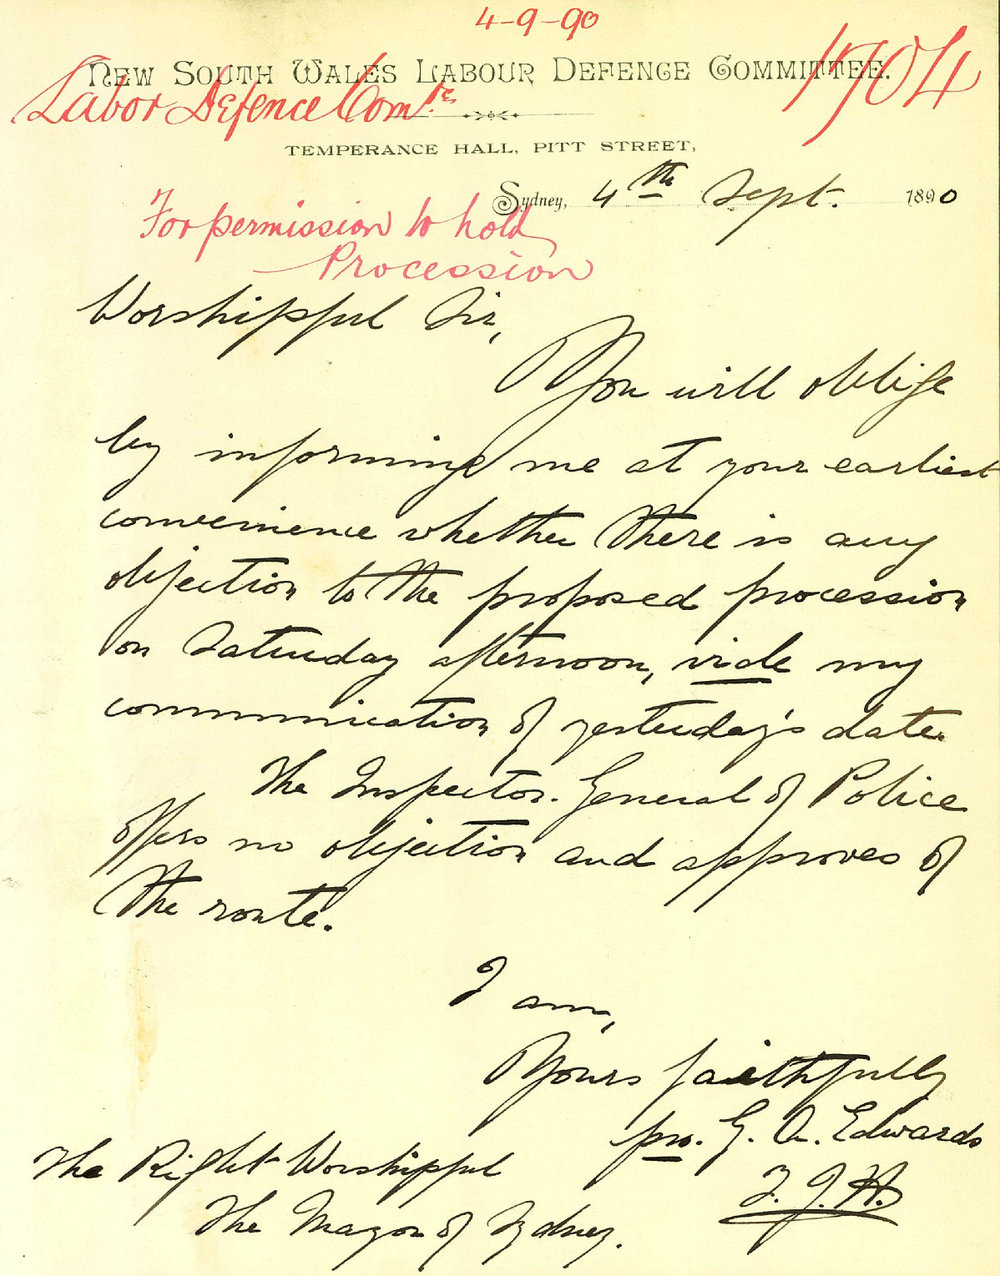 4-9-90
NEW SOUTH WALES LABOUR DEFENCE COMMITTEE.
1704
Labor Defence Com^tee
TEMPERANCE HALL, PITT STREET,
Sydney, 4th Sept. 1890
For permission to hold
Procession
Worshipful Sir,
You will oblige
by informing me at your earliest
convenience whether there is any
objection to the proposed procession
on Saturday afternoon, vide my
communication of yesterday's date.
The Inspector-General of Police
offers no objection and approves of
the route.
I am,
Yours faithfully
pro. G. A. Edwards
T. J. H.
The Right Worshipful
The Mayor of Sydney.